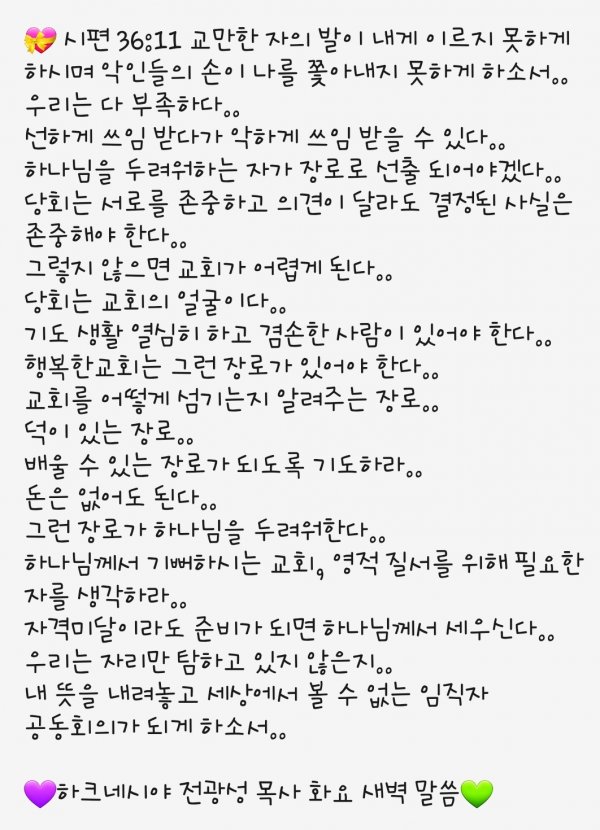 💝 시편 36:11 교만한 자의 발이 내게 이르지 못하게
하시며 악인들의 손이 나를 쫓아내지 못하게 하소서..
우리는 다 부족하다..
선하게 쓰임 받다가 악하게 쓰임 받을 수 있다..
하나님을 두려워하는 자가 장로로 선출 되어야겠다..
당회는 서로를 존중하고 의견이 달라도 결정된 사실은
존중해야 한다..
그렇지 않으면 교회가 어렵게 된다..
당회는 교회의 얼굴이다..
기도 생활 열심히 하고 겸손한 사람이 있어야 한다..
행복한교회는 그런 장로가 있어야 한다..
교회를 어떻게 섬기는지 알려주는 장로..
덕이 있는 장로..
배울 수 있는 장로가 되도록 기도하라..
돈은 없어도 된다..
그런 장로가 하나님을 두려워한다..
하나님께서 기뻐하시는 교회, 영적 질서를 위해 필요한
자를 생각하라..
자격미달이라도 준비가 되면 하나님께서 세우신다..
우리는 자리만 탐하고 있지 않은지..
내 뜻을 내려놓고 세상에서 볼 수 없는 임직자
공동회의가 되게 하소서..
💜하크네시야 전광성 목사 화요 새벽 말씀💚